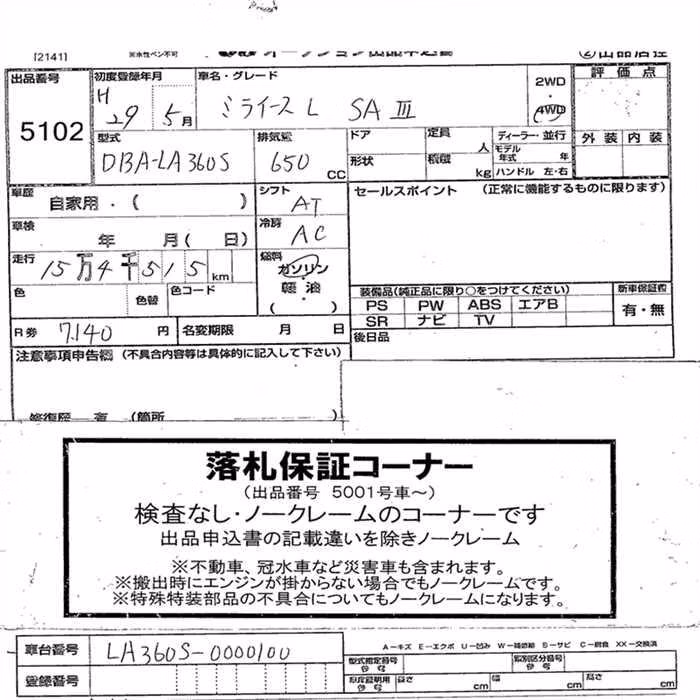 [2141]
※水性ペン不可
出品番号
5102
初度登録年月
H 29 5月
車名・グレード
ミライース L SAⅢ
2WD
4WD
評価点
外装 内装
型式
DBA-LA360S
排気量
650 CC
ドア
形状
定員
人
積載
kg
ディーラー・並行
モデル年式 年
ハンドル 左・右
車歴
自家用・( )
シフト
AT
セールスポイント (正常に機能するものに限ります)
車検
年 月( 日)
冷房
AC
走行
15万4千515km
燃料
ガソリン
軽油
( )
色
色替
色コード
装備品(純正品に限り○をつけてください)
PS PW ABS エアB
SR ナビ TV
新車保証書
有・無
R券 7.140 円
名変期限 月 日
後日品
注意事項申告欄 (不具合内容等は具体的に記入して下さい)
落札保証コーナー
(出品番号 5001号車~)
検査なし・ノークレームのコーナーです
出品申込書の記載違いを除きノークレーム
※不動車、冠水車など災害車も含まれます。
※搬出時にエンジンが掛からない場合でもノークレームです。
※特殊特装部品の不具合についてもノークレームになります。
A-キズ E-エクボ U-凹み W-補修跡 S-サビ C-腐食 XX-交換済
車台番号
LA360S-0000100
登録番号
型式指定番号
類別区分番号
長さ cm
幅 cm
高さ cm